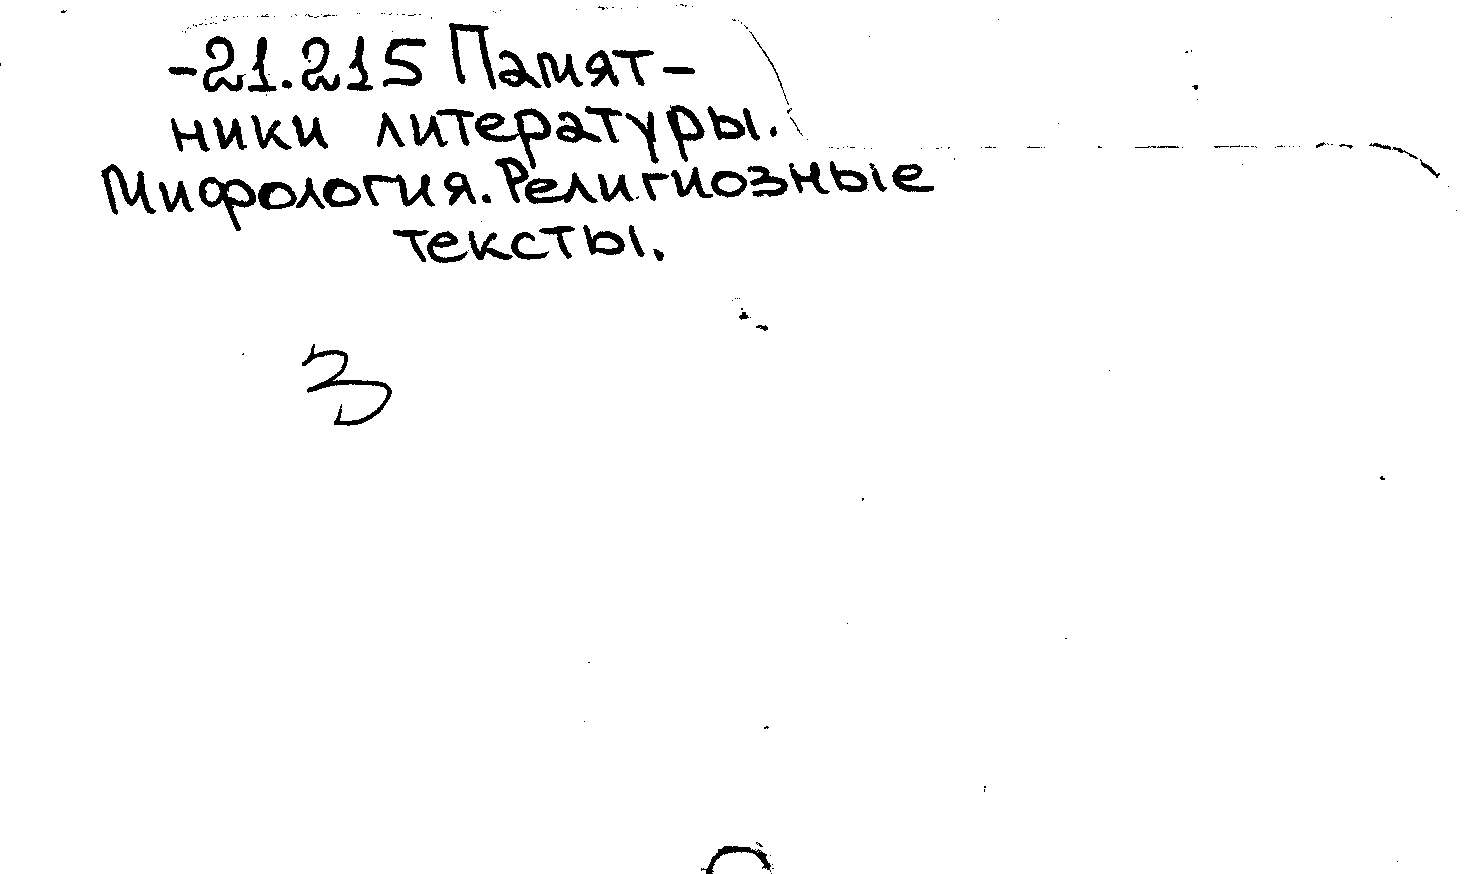 -21.215 Памят-
ники литературы.
Мифология. Религиозные
тексты.
З